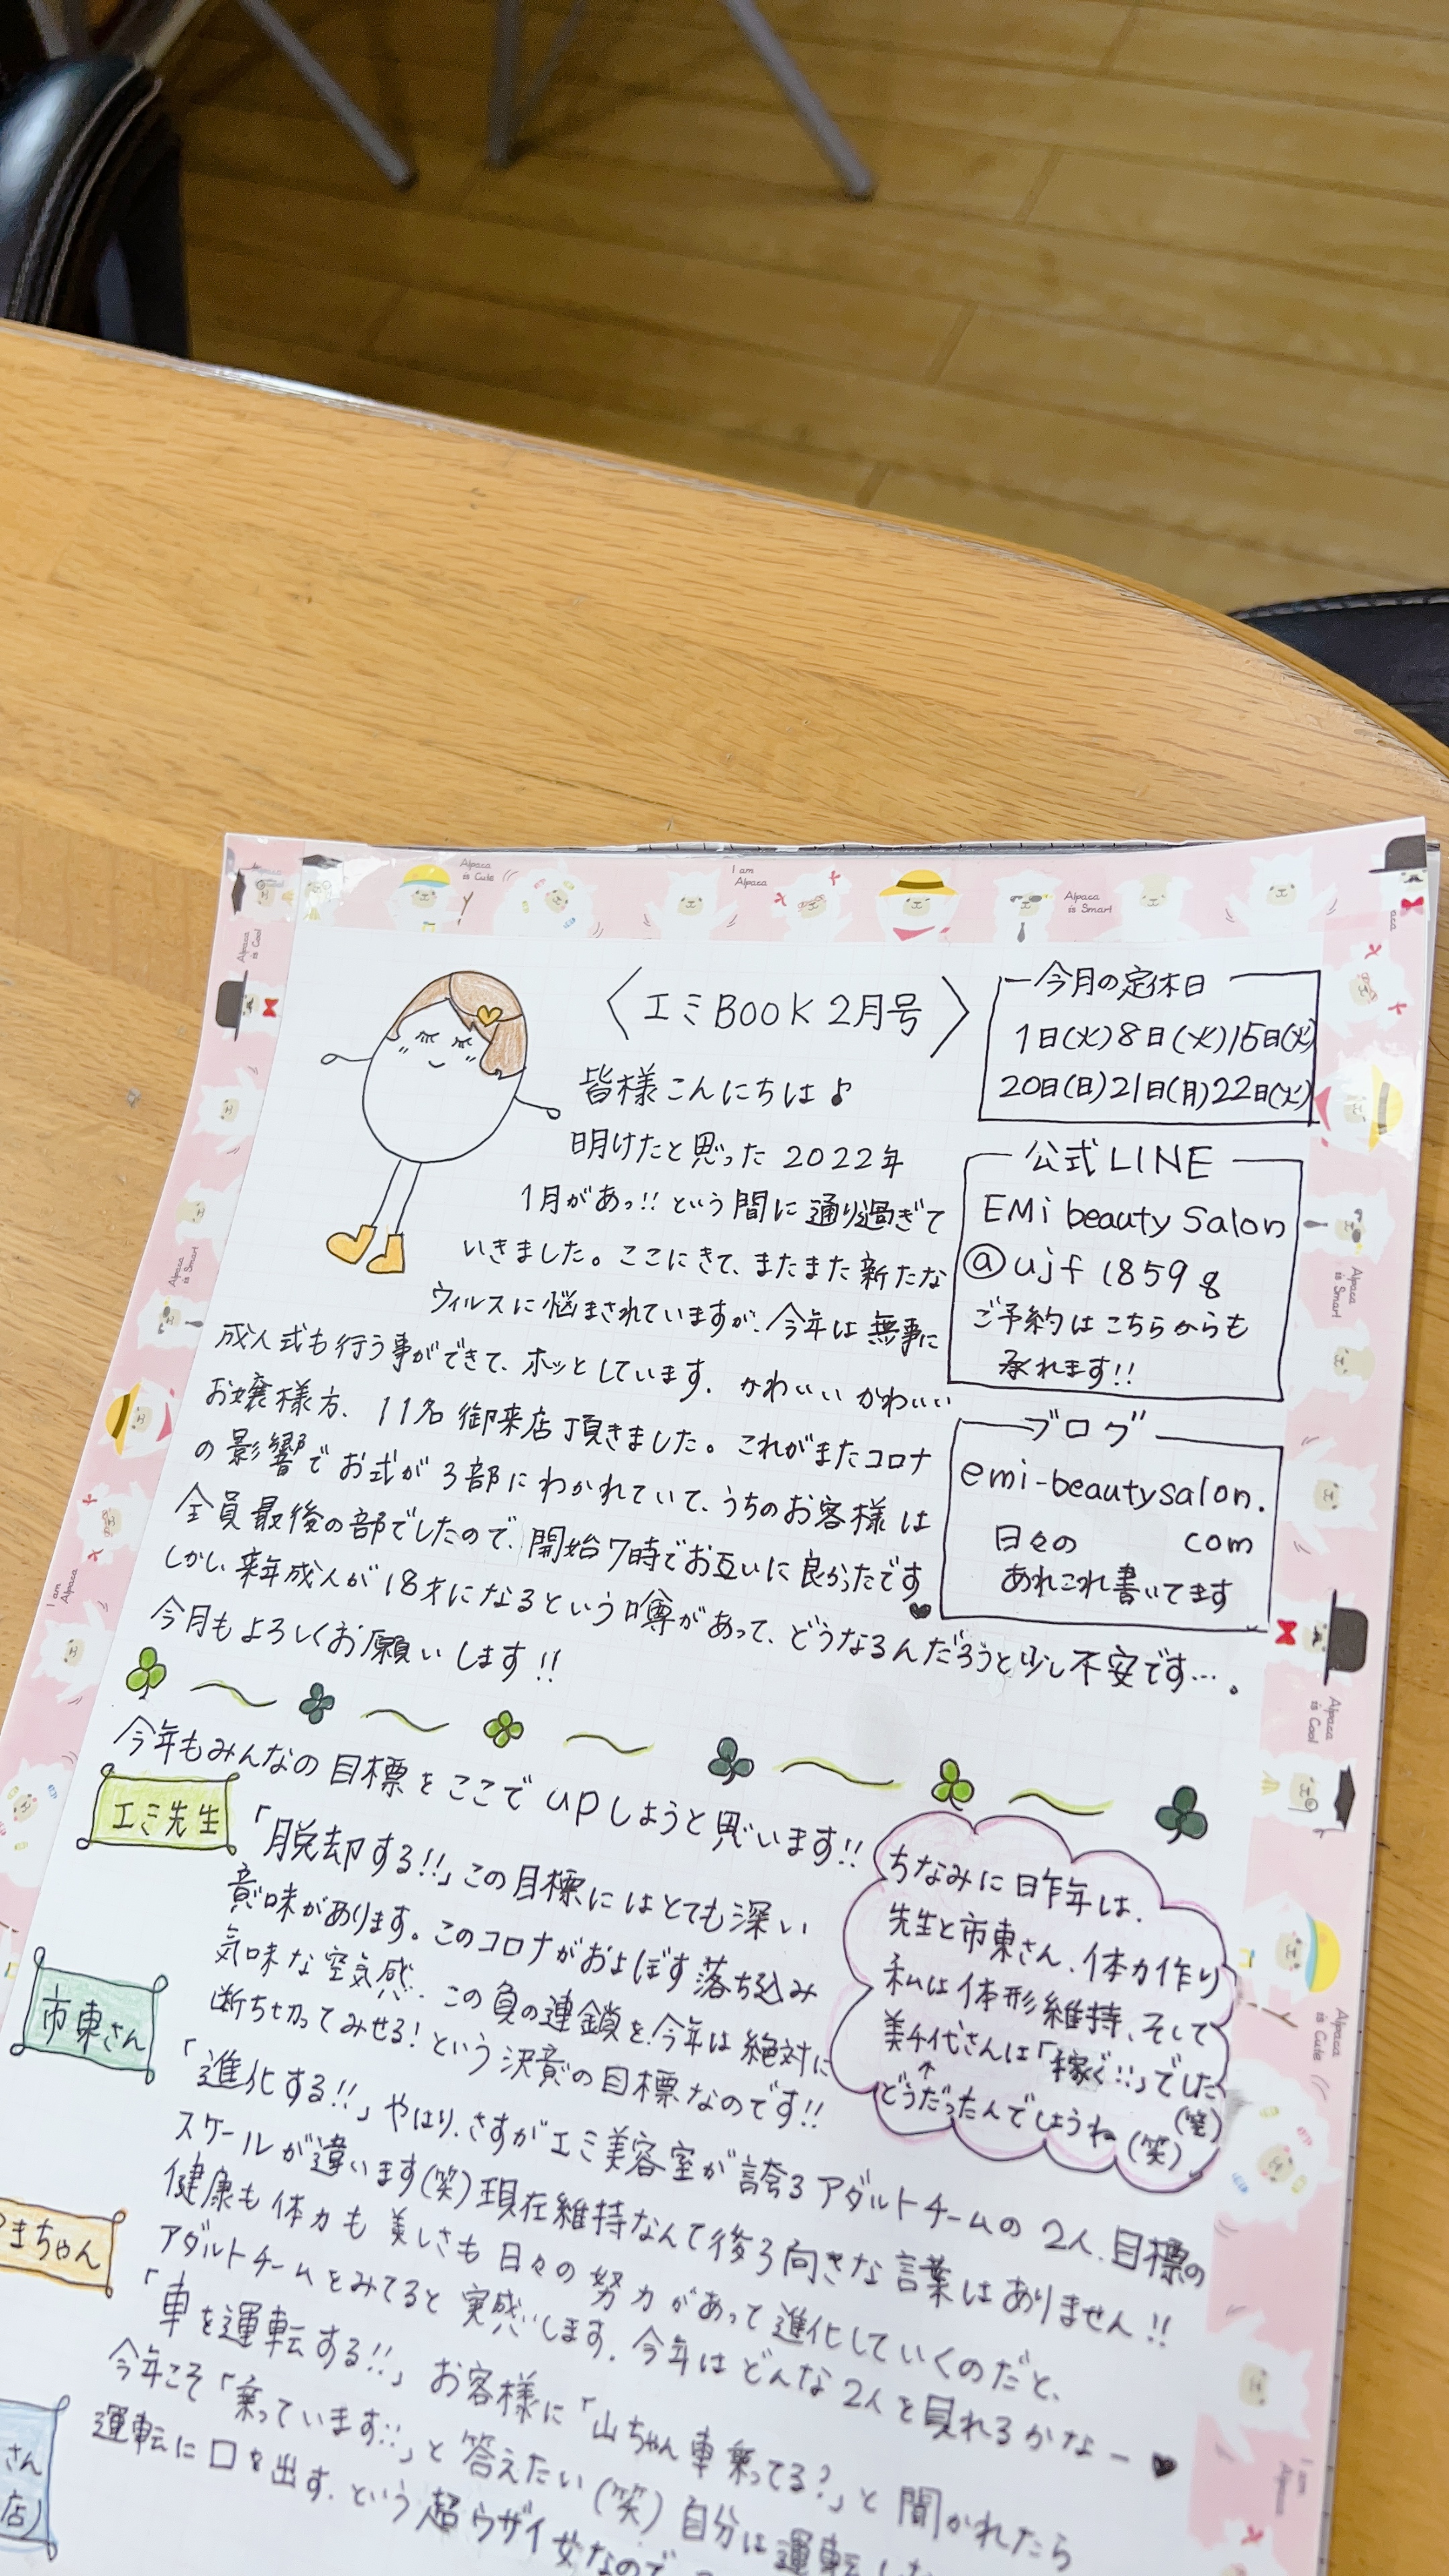 〈エミBOOK 2月号〉
皆様こんにちは♪
明けたと思った2022年
1月があっ!!という間に通り過ぎて
いきました。ここにきて、またまた新たな
ウィルスに悩まされていますが、今年は無事に
成人式も行う事ができて、ホッとしています。かわいいかわいい
お嬢様方、11名御来店頂きました。これがまたコロナ
の影響でお式が3部にわかれていて、うちのお客様は
全員最後の部でしたので、開始7時でお互いに良かったです♥
しかし、来年成人が18才になるという噂があって、どうなるんだろうと少し不安です…。
今月もよろしくお願いします!!
今月の定休日
1日(火)8日(火)15日(火)
20日(日)21日(月)22日(火)
公式LINE
EMi beauty Salon
@ujf1859g
ご予約はこちらからも
承れます!!
ブログ
emi-beautysalon.
com
日々の
あれこれ書いてます
今年もみんなの目標をここでupしようと思います!!
エミ先生
「脱却する!!」この目標にはとても深い
意味があります。このコロナがおよぼす落ち込み
気味な空気感、この負の連鎖を、今年は絶対に
断ち切ってみせる!という決意の目標なのです!!
ちなみに昨年は、
先生と市東さん、体力作り
私は体形維持、そして
美千代さんは「稼ぐ!!」でした(笑)
↑
どうだったんでしょうね(笑)
市東さん
「進化する!!」やはり、さすがエミ美容室が誇るアダルトチームの2人、目標の
スケールが違います(笑)現在維持なんて後ろ向きな言葉はありません!!
健康も体力も美しさも日々の努力があって進化していくのだと、
アダルトチームをみてると実感します。今年はどんな2人を見れるかなー♥
まちゃん
「車を運転する!!」お客様に「山ちゃん車乗ってる?」と聞かれたら
今年こそ「乗っています!!」と答えたい(笑)自分は運転し
運転に口を出す、という超ウザイ女なので
さん
店)
Alpaca is Cute
I am Alpaca
Alpaca is Smart
Alpaca is Cool